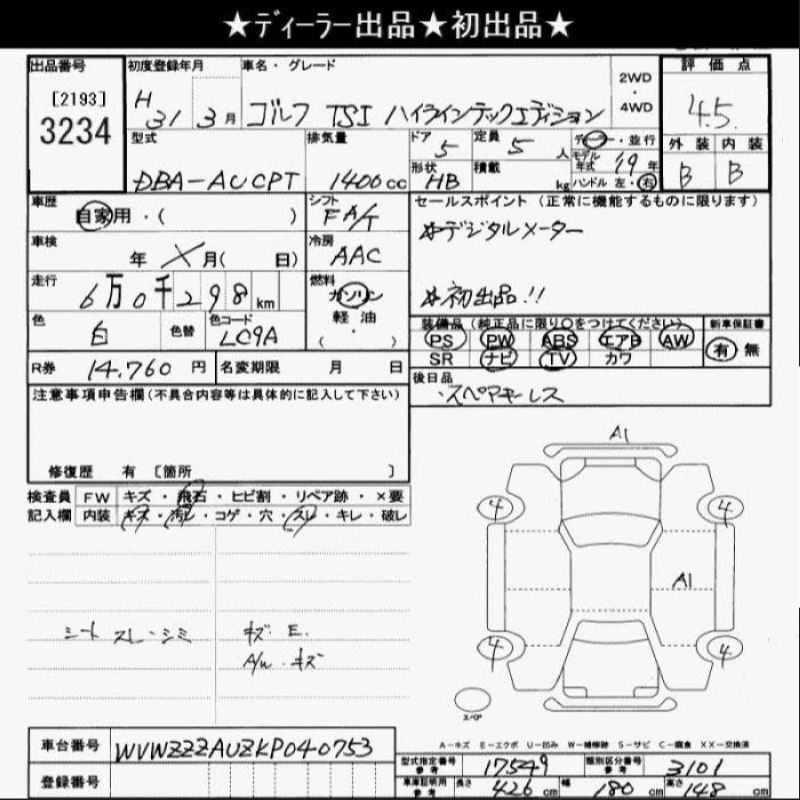 ★ディーラー出品★初出品★
出品番号 初度登録年月 車名・グレード 2WD・4WD 評価点
[2193]
3234
H 31 3月 ゴルフ TSI ハイラインテックエディション 4.5
型式 排気量 ドア 定員 ディーラー・並行 外装 内装
DBA-AUCPT 1400cc 5 5人 モデル年式 19年 B B
形状 積載
HB kg ハンドル 左・右
車歴 シフト セールスポイント (正常に機能するものに限ります)
自家用・( ) FA/T ☆デジタルメーター
車検 冷房
年 X月( 日) AAC
走行 燃料
6万0千298km ガソリン ☆初出品!!
色 色替 色コード 軽油
白 LC9A ・( )
装備品 (純正品に限り○をつけてください) 新車保証書
PS PW ABS エアB AW 有 無
SR ナビ TV カワ
R券 14.760円 名変期限 月 日
後日品
・スペアキーレス
注意事項申告欄(不具合内容等は具体的に記入して下さい)
修復歴 有 [箇所 ]
検査員 FW キズ・飛石・ヒビ割・リペア跡・×要
記入欄 内装 キズ・汚レ・コゲ・穴・スレ・キレ・破レ
A1
4 4
A1
シート スレ・シミ キズ E.
A/W・キズ
4 4
スペア
A-キズ E-エクボ U-凹み W-補修跡 S-サビ C-腐食 XX-交換済
車台番号 WVWZZZAUZKP040753
型式指定番号 参考 17549 類別区分番号 参考 3101
登録番号
車庫証明用 参考 長さ 426cm 幅 180cm 高さ 148cm